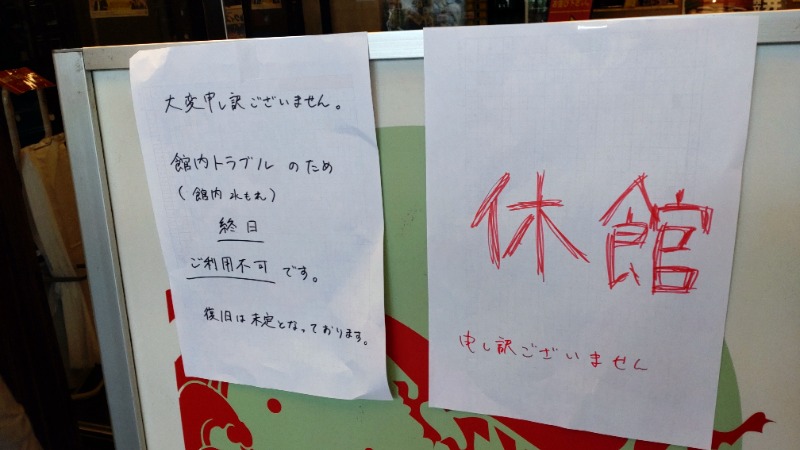 大変申し訳ございません。
館内トラブルのため
(館内水もれ)
終日
ご利用不可です。
復旧は未定となっております。
休館
申し訳ございません